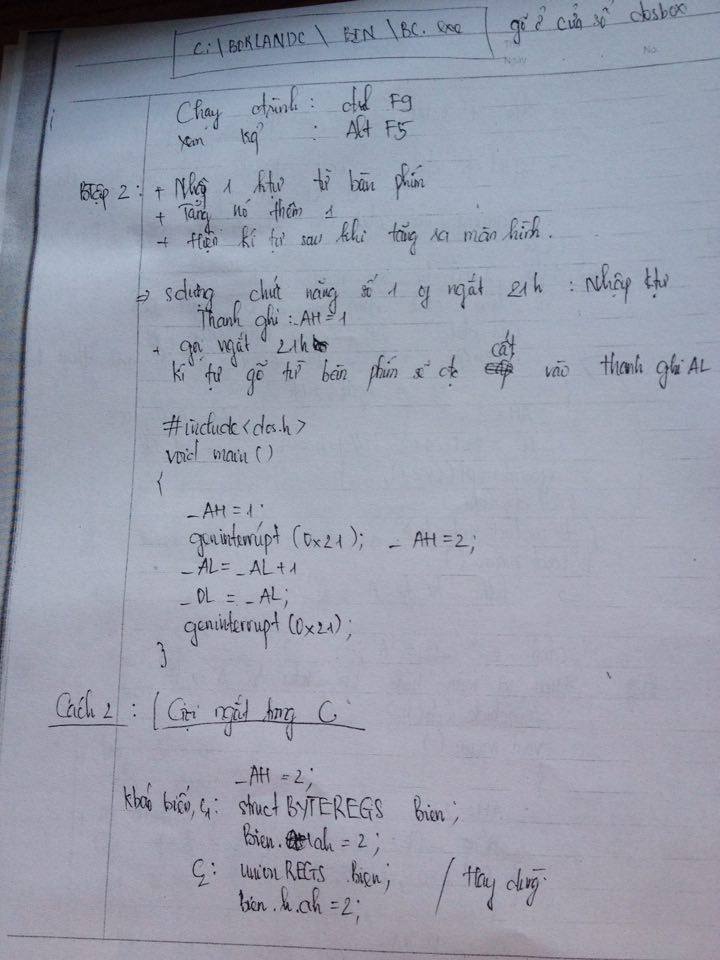 C:\BORLANDC\BIN\BC.exe / gõ ở cửa sổ dosbox
Ngày No.
Chạy trình : ctrl F9
xem kq : Alt F5
Btập 2 : + Nhập 1 ktự từ bàn phím
+ Tăng nó thêm 1
+ Hiện kí tự sau khi tăng ra màn hình.
=> sdụng chức năng số 1 of ngắt 21h : Nhập ktự
Thanh ghi : AH = 1
+ gọi ngắt 21h
kí tự gõ từ bàn phím sẽ đc cất vào thanh ghi AL
#include<dos.h>
void main()
{
_AH = 1;
geninterrupt (0x21); _AH = 2;
_AL = _AL + 1
_DL = _AL;
geninterrupt (0x21);
}
Cách 2 : Gọi ngắt trong C
_AH = 2;
khbáo biến, C1: struct BYTEREGS Bien;
Bien.ah = 2;
C2: union REGS Bien; / Hay dùng
bien.h.ah = 2;